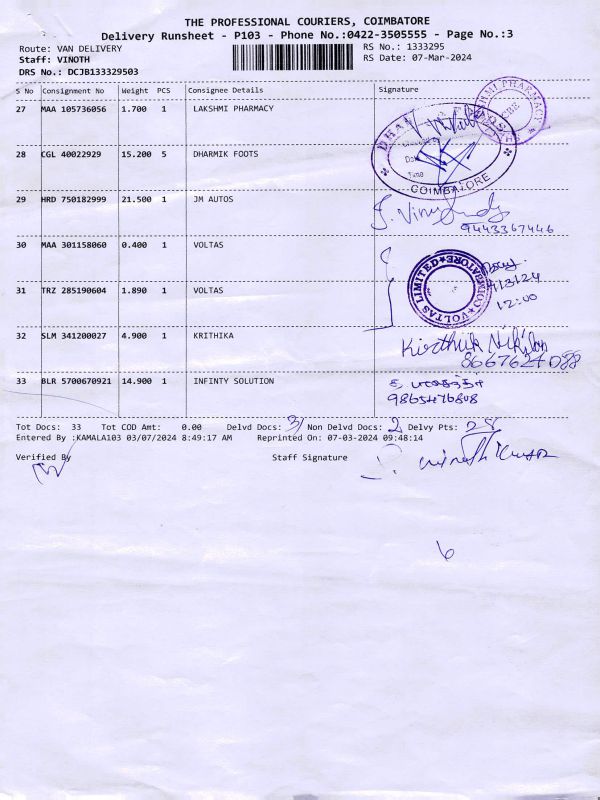 THE PROFESSIONAL COURIERS, COIMBATORE
Delivery Runsheet - P103 - Phone No.:0422-3505555 - Page No.:3
Route: VAN DELIVERY
RS No.: 1333295
Staff: VINOTH
RS Date: 07-Mar-2024
DRS No.: DCJB133329503
S No Consignment No Weight PCS Consignee Details Signature
27 MAA 105736056 1.700 1 LAKSHMI PHARMACY
28 CGL 40022929 15.200 5 DHARMIK FOOTS
COIMBATORE
29 HRD 750182999 21.500 1 JM AUTOS
9443367446
30 MAA 301158060 0.400 1 VOLTAS
VOLTAS LIMITED COIMBATORE
12:00
31 TRZ 285190604 1.890 1 VOLTAS
32 SLM 341200027 4.900 1 KRITHIKA
33 BLR 5700670921 14.900 1 INFINTY SOLUTION
9865476808
Tot Docs: 33 Tot COD Amt: 0.00 Delvd Docs: 31 Non Delvd Docs: 2 Delvy Pts: 28
Entered By :KAMALA103 03/07/2024 8:49:17 AM Reprinted On: 07-03-2024 09:48:14
Verified By Staff Signature
6